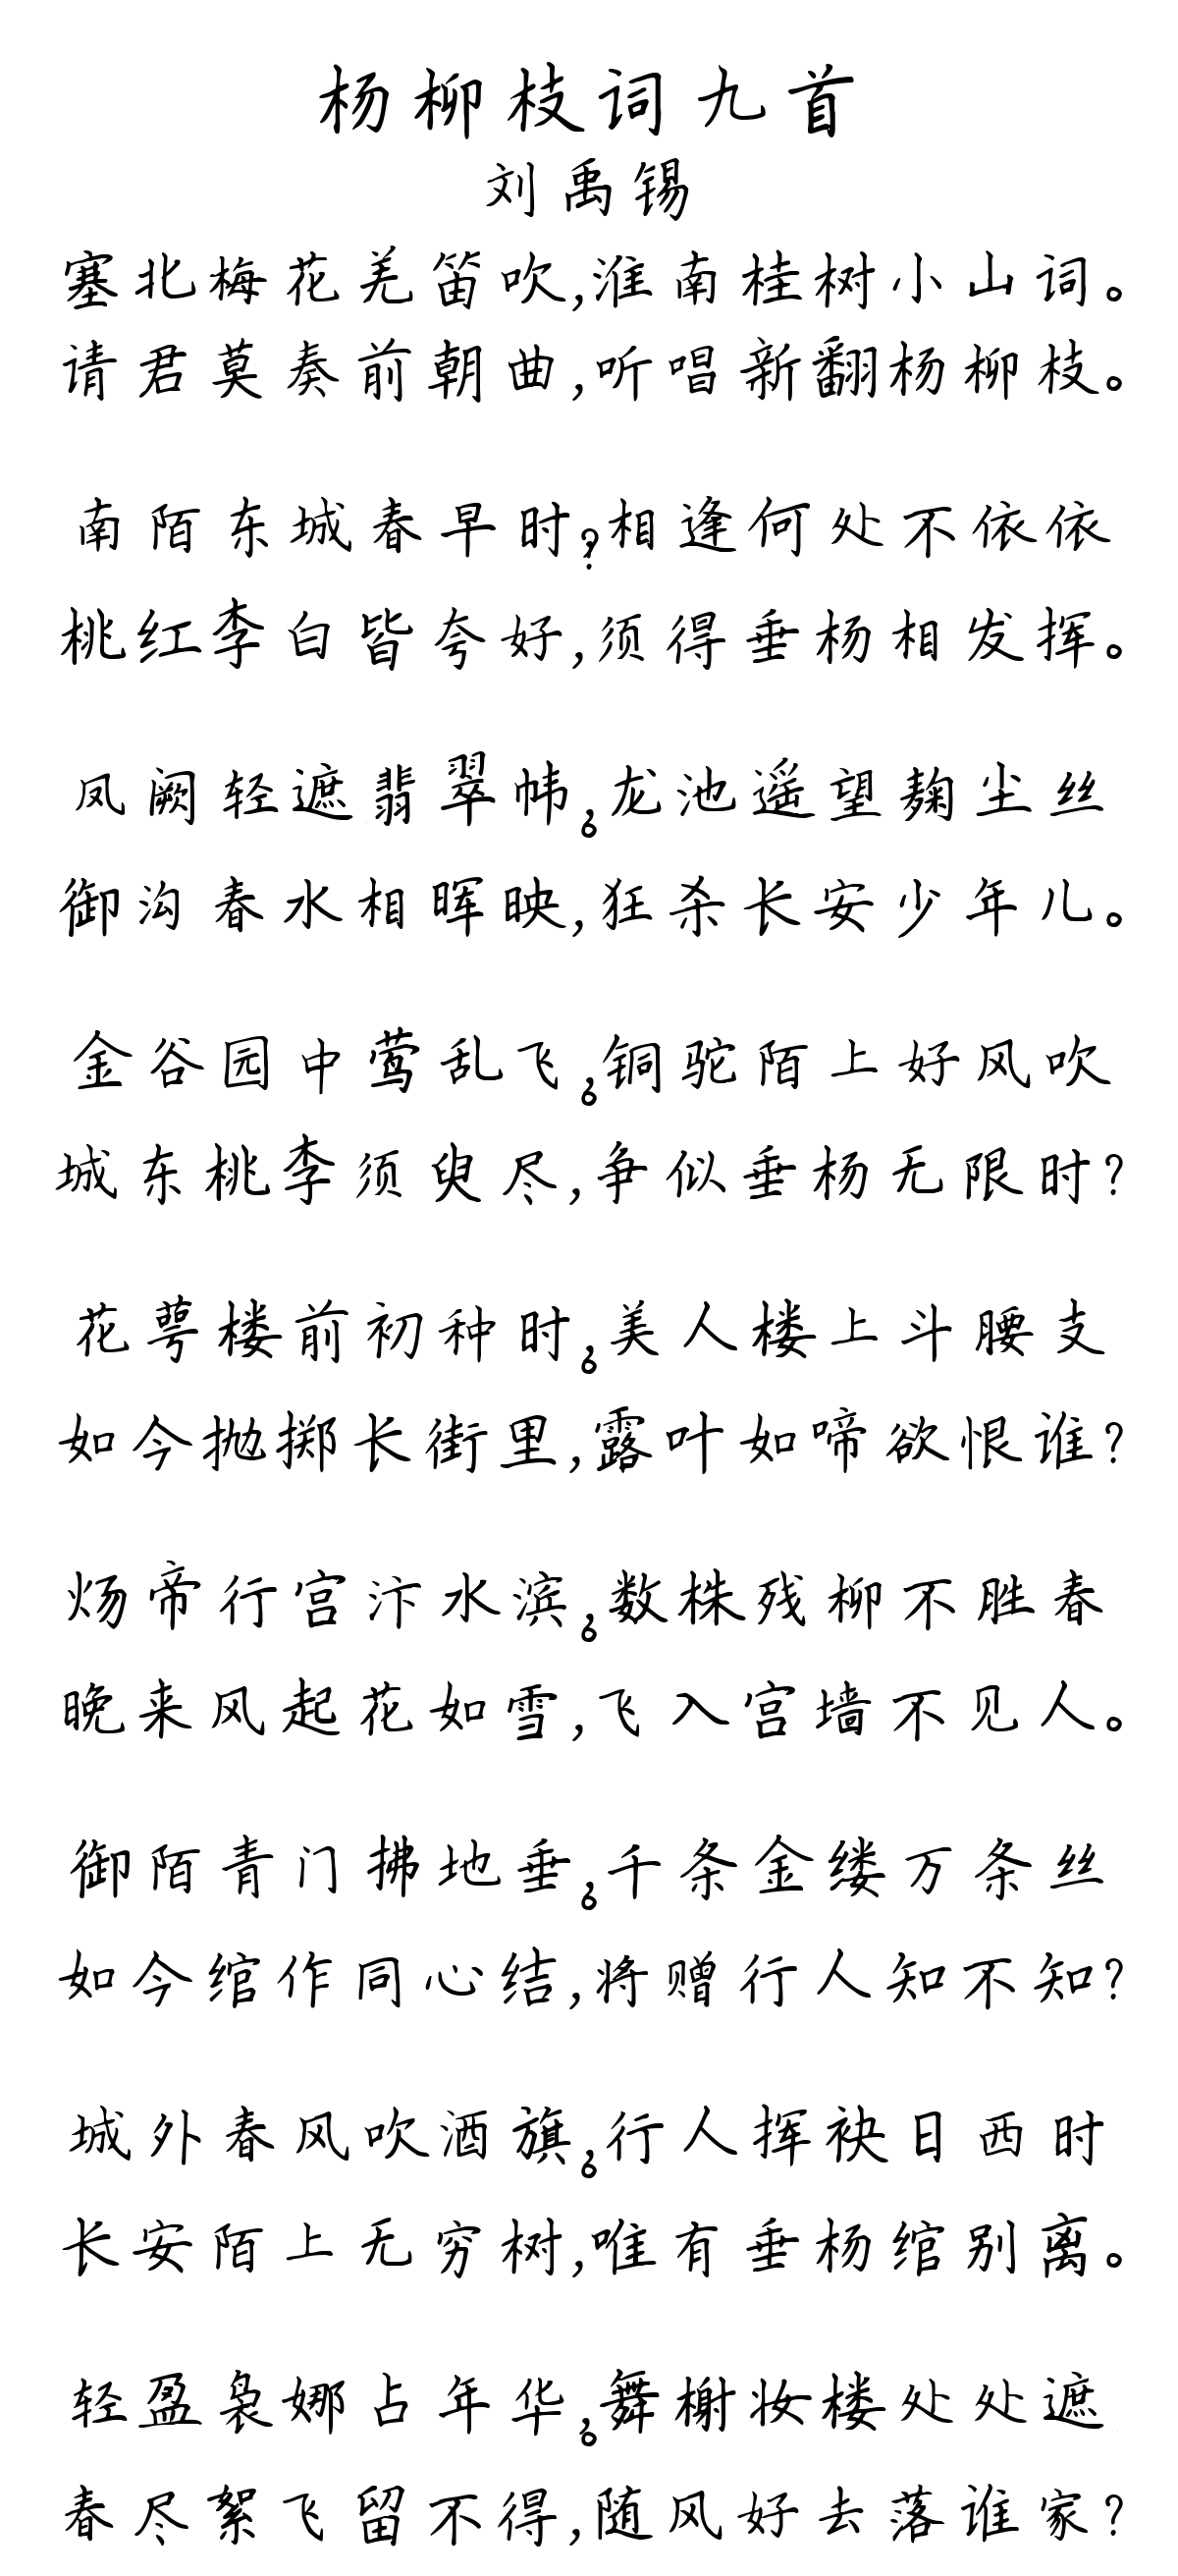 杨柳枝词九首
刘禹锡
塞北梅花羌笛吹,淮南桂树小山词。
请君莫奏前朝曲,听唱新翻杨柳枝。
南陌东城春早时,相逢何处不依依?
桃红李白皆夸好,须得垂杨相发挥。
凤阙轻遮翡翠帏,龙池遥望麹尘丝。
御沟春水相晖映,狂杀长安少年儿。
金谷园中莺乱飞,铜驼陌上好风吹。
城东桃李须臾尽,争似垂杨无限时?
花萼楼前初种时,美人楼上斗腰支。
如今抛掷长街里,露叶如啼欲恨谁?
炀帝行宫汴水滨,数株残柳不胜春。
晚来风起花如雪,飞入宫墙不见人。
御陌青门拂地垂,千条金缕万条丝。
如今绾作同心结,将赠行人知不知?
城外春风吹酒旗,行人挥袂日西时。
长安陌上无穷树,唯有垂杨绾别离。
轻盈袅娜占年华,舞榭妆楼处处遮。
春尽絮飞留不得,随风好去落谁家?